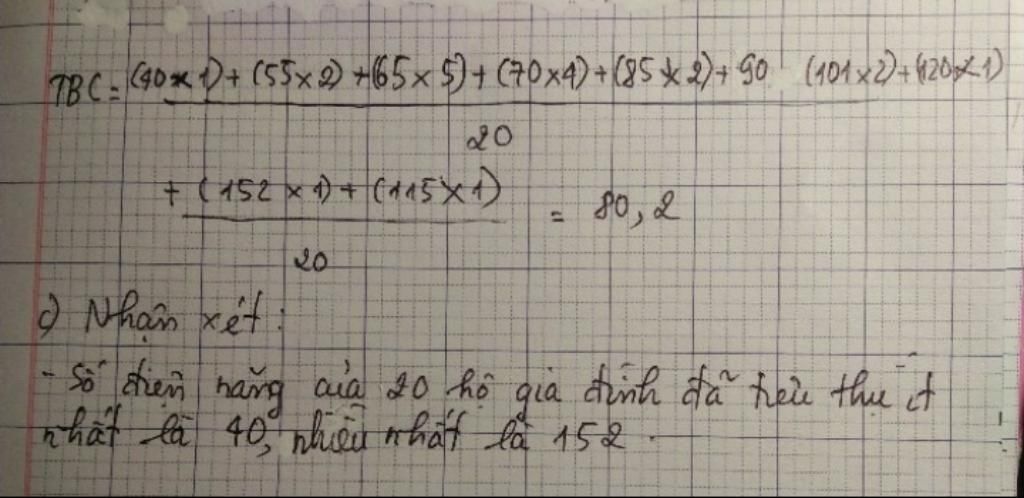 TBC = (40 x 1) + (55 x 2) + (65 x 5) + (70 x 4) + (85 x 2) + 90 (101 x 2) + (120 x 1)
20
+ (152 x 1) + (115 x 1) = 80,2
20
c) Nhận xét:
- Số điện năng của 20 hộ gia đình đã tiêu thụ ít
nhất là 40, nhiều nhất là 152.